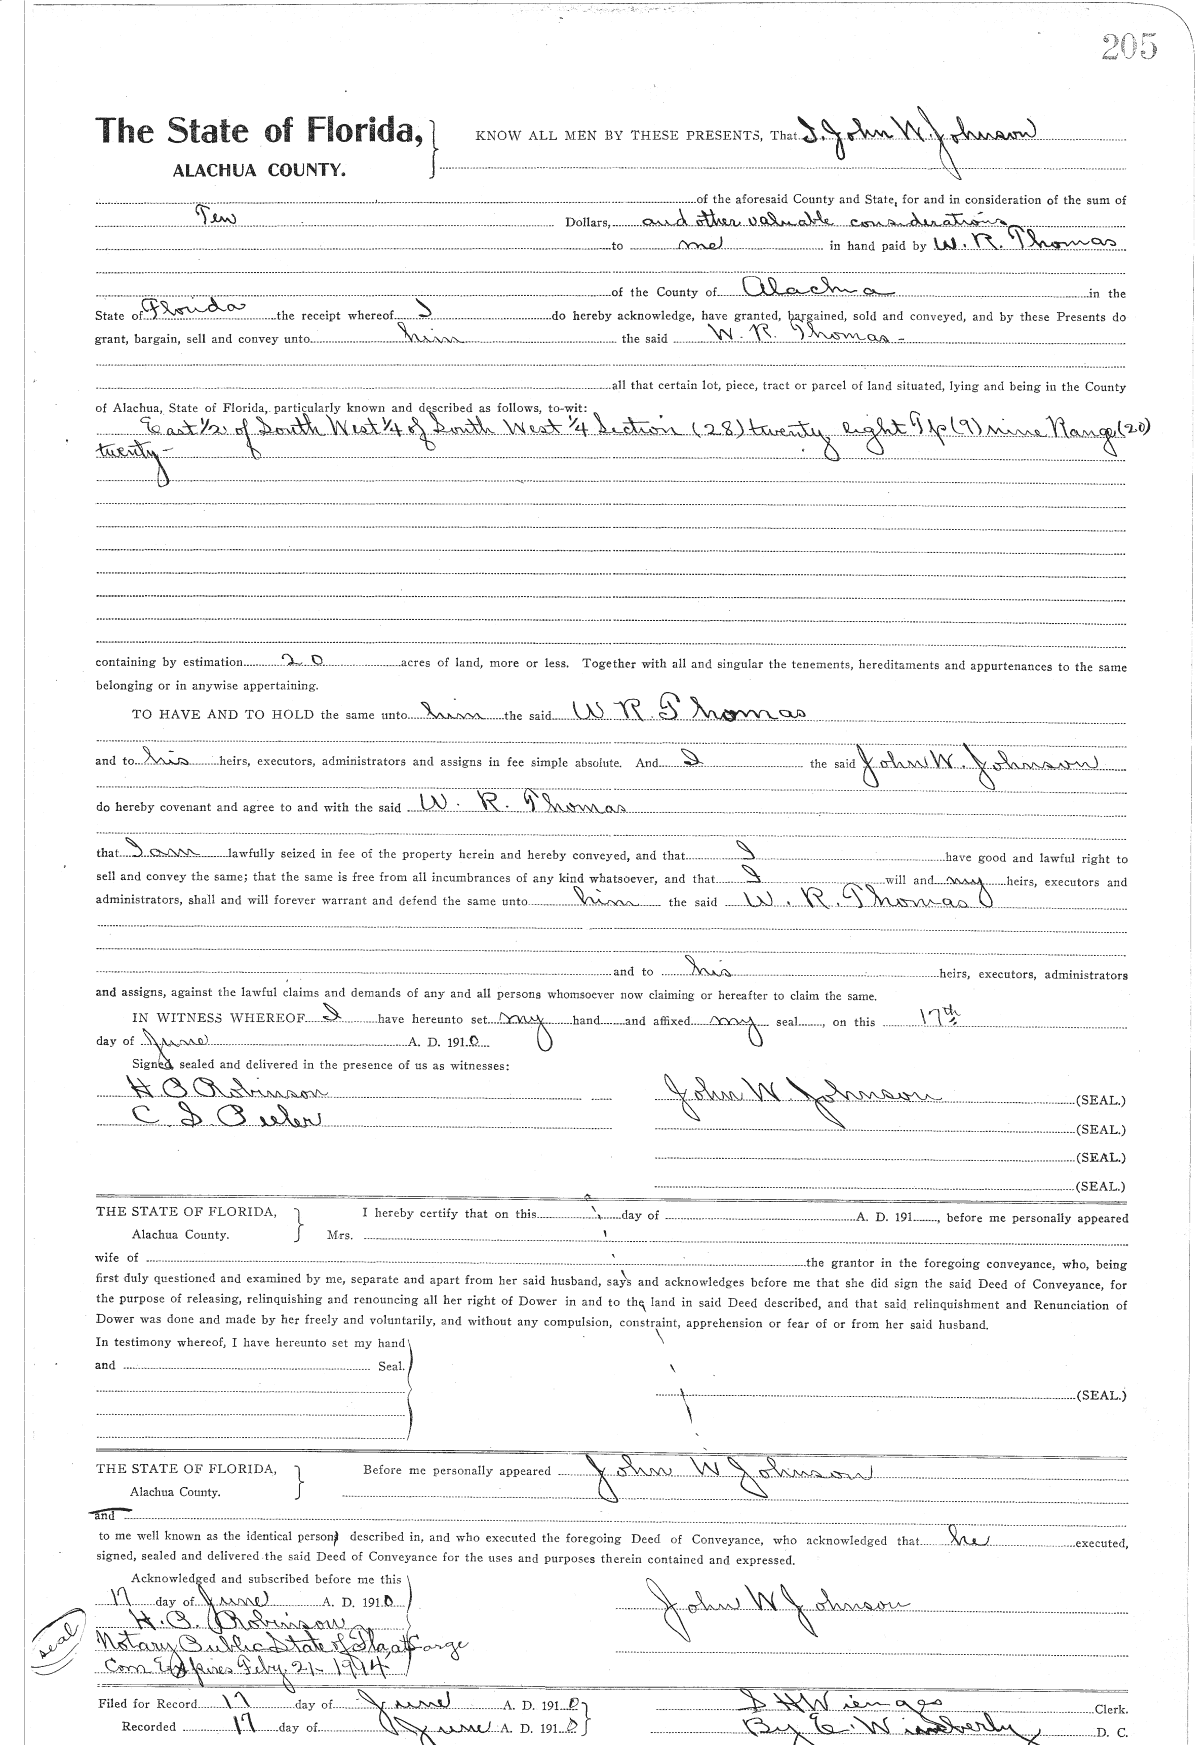 205
The State of Florida, KNOW ALL MEN BY THESE PRESENTS, That I, John W. Johnson
ALACHUA COUNTY.
of the aforesaid County and State, for and in consideration of the sum of
Ten Dollars, and other valuable considerations
to me in hand paid by W. R. Thomas
of the County of Alachua in the
State of Florida the receipt whereof I do hereby acknowledge, have granted, bargained, sold and conveyed, and by these Presents do
grant, bargain, sell and convey unto him the said W. R. Thomas -
all that certain lot, piece, tract or parcel of land situated, lying and being in the County
of Alachua, State of Florida, particularly known and described as follows, to-wit:
East 1/2 of South West 1/4 of South West 1/4 Section (28) twenty eight Tp (9) nine Range (20)
twenty -
containing by estimation 20 acres of land, more or less. Together with all and singular the tenements, hereditaments and appurtenances to the same
belonging or in anywise appertaining.
TO HAVE AND TO HOLD the same unto him the said W R Thomas
and to his heirs, executors, administrators and assigns in fee simple absolute. And I the said John W. Johnson
do hereby covenant and agree to and with the said W. R. Thomas
that I am lawfully seized in fee of the property herein and hereby conveyed, and that I have good and lawful right to
sell and convey the same; that the same is free from all incumbrances of any kind whatsoever, and that I will and my heirs, executors and
administrators, shall and will forever warrant and defend the same unto him the said W. R. Thomas
and to his heirs, executors, administrators
and assigns, against the lawful claims and demands of any and all persons whomsoever now claiming or hereafter to claim the same.
IN WITNESS WHEREOF I have hereunto set my hand and affixed my seal, on this 17th
day of June A. D. 1910.
Signed sealed and delivered in the presence of us as witnesses:
H B Robinson John W Johnson (SEAL.)
C S Peeler (SEAL.)
(SEAL.)
(SEAL.)
THE STATE OF FLORIDA, I hereby certify that on this day of A. D. 191, before me personally appeared
Alachua County. Mrs.
wife of the grantor in the foregoing conveyance, who, being
first duly questioned and examined by me, separate and apart from her said husband, says and acknowledges before me that she did sign the said Deed of Conveyance, for
the purpose of releasing, relinquishing and renouncing all her right of Dower in and to the land in said Deed described, and that said relinquishment and Renunciation of
Dower was done and made by her freely and voluntarily, and without any compulsion, constraint, apprehension or fear of or from her said husband.
In testimony whereof, I have hereunto set my hand
and Seal.
(SEAL.)
THE STATE OF FLORIDA, Before me personally appeared John W Johnson
Alachua County.
and
to me well known as the identical person described in, and who executed the foregoing Deed of Conveyance, who acknowledged that he executed,
signed, sealed and delivered the said Deed of Conveyance for the uses and purposes therein contained and expressed.
Acknowledged and subscribed before me this
17 day of June A. D. 1910 John W Johnson
H. B. Robinson
seal Notary Public State of Fla at Large
Com Expires Feby. 21- 1914
Filed for Record 17 day of June A. D. 1910 S H Wienges Clerk.
Recorded 17 day of June A. D. 1910 By E. Wimberly D. C.